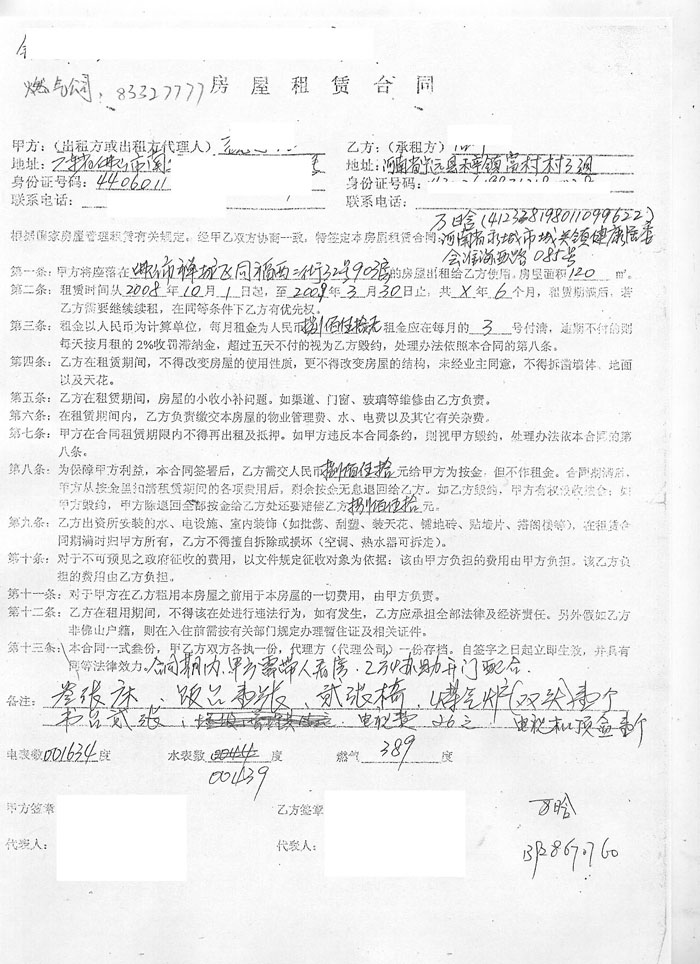 燃气公司: 83327777 房屋租赁合同
甲方:(出租方或出租方代理人) 乙方:(承租方)
地址: 地址:河南省 县 镇富村村
身份证号码:4406011 身份证号码:
联系电话: 联系电话:
万晗(412328198011099622)
根据国家房屋管理租赁有关规定。经甲乙双方协商一致,特签定本房屋租赁合同
河南省永城市城关镇健康居委会淮海西路085号
第一条:甲方将座落在 市禅城区同福西二街32号903房的房屋出租给乙方使用,房屋面积120 m²。
第二条:租赁时间从2008年10月1日起,至2009年3月30日止,共X年6个月,租赁期满后,若
乙方需要继续续租,在同等条件下乙方有优先权。
第三条:租金以人民币为计算单位,每月租金为人民币捌佰伍拾元租金应在每月的3号付清,逾期不付的则
每天按月租的2%收罚滞纳金,超过五天不付的视为乙方毁约,处理办法依照本合同的第八条。
第四条:乙方在租赁期间,不得改变房屋的使用性质,更不得改变房屋的结构,未经业主同意,不得拆凿墙体、地面
以及天花。
第五条:乙方在租赁期间,房屋的小收小补问题。如渠道、门窗、玻璃等维修由乙方负责。
第六条:在租赁期间内,乙方负责缴交本房屋的物业管理费、水、电费以及其它有关杂费。
第七条:甲方在合同租赁期限内不得再出租及抵押。如甲方违反本合同条约,则视甲方毁约,处理办法依本合同的第
八条。
第八条:为保障甲方利益,本合同签署后,乙方需交人民币捌佰伍拾元给甲方为按金,但不作租金。合同期满后,
甲方从按金里扣清租赁期间的各项费用后,剩余按金无息退回给乙方。如乙方毁约,甲方有权没收按金;如
甲方毁约,甲方除退回全部按金给乙方处还要赔偿乙方捌佰伍拾元。
第九条:乙方出资所安装的水、电设施、室内装饰(如批荡、刮塑、装天花、铺地砖、贴墙片、搭阁楼等),在租赁合
同期满时归甲方所有,乙方不得擅自拆除或损坏(空调、热水器可拆走)。
第十条:对于不可预见之政府征收的费用,以文件规定征收对象为依据:该由甲方负担的费用由甲方负担。该乙方负
担的费用由乙方负担。
第十一条:对于甲方在乙方租用本房屋之前用于本房屋的一切费用,由甲方负责。
第十二条:乙方在租用期间,不得该在处进行违法行为,如有发生,乙方应承担全部法律及经济责任。另外假如乙方
非佛山户籍,则在入住前需按有关部门规定办理暂住证及相关证件。
第十三条:本合同一式叁份,甲乙方双方各执一份,代理方(代理公司)一份存档。自签字之日起立即生效,并具有
同等法律效力。合同期内,甲方需带人看房,乙方协助开门配合。
备注:叁张床、饭台壹张、贰张椅、煤气炉(双头)壹个
书台贰张、 电视费26元 电视机顶盒壹个
电表数001634度 水表数0044度 燃气389度
00439
甲方签章 乙方签章 万晗
代表人: 代表人: